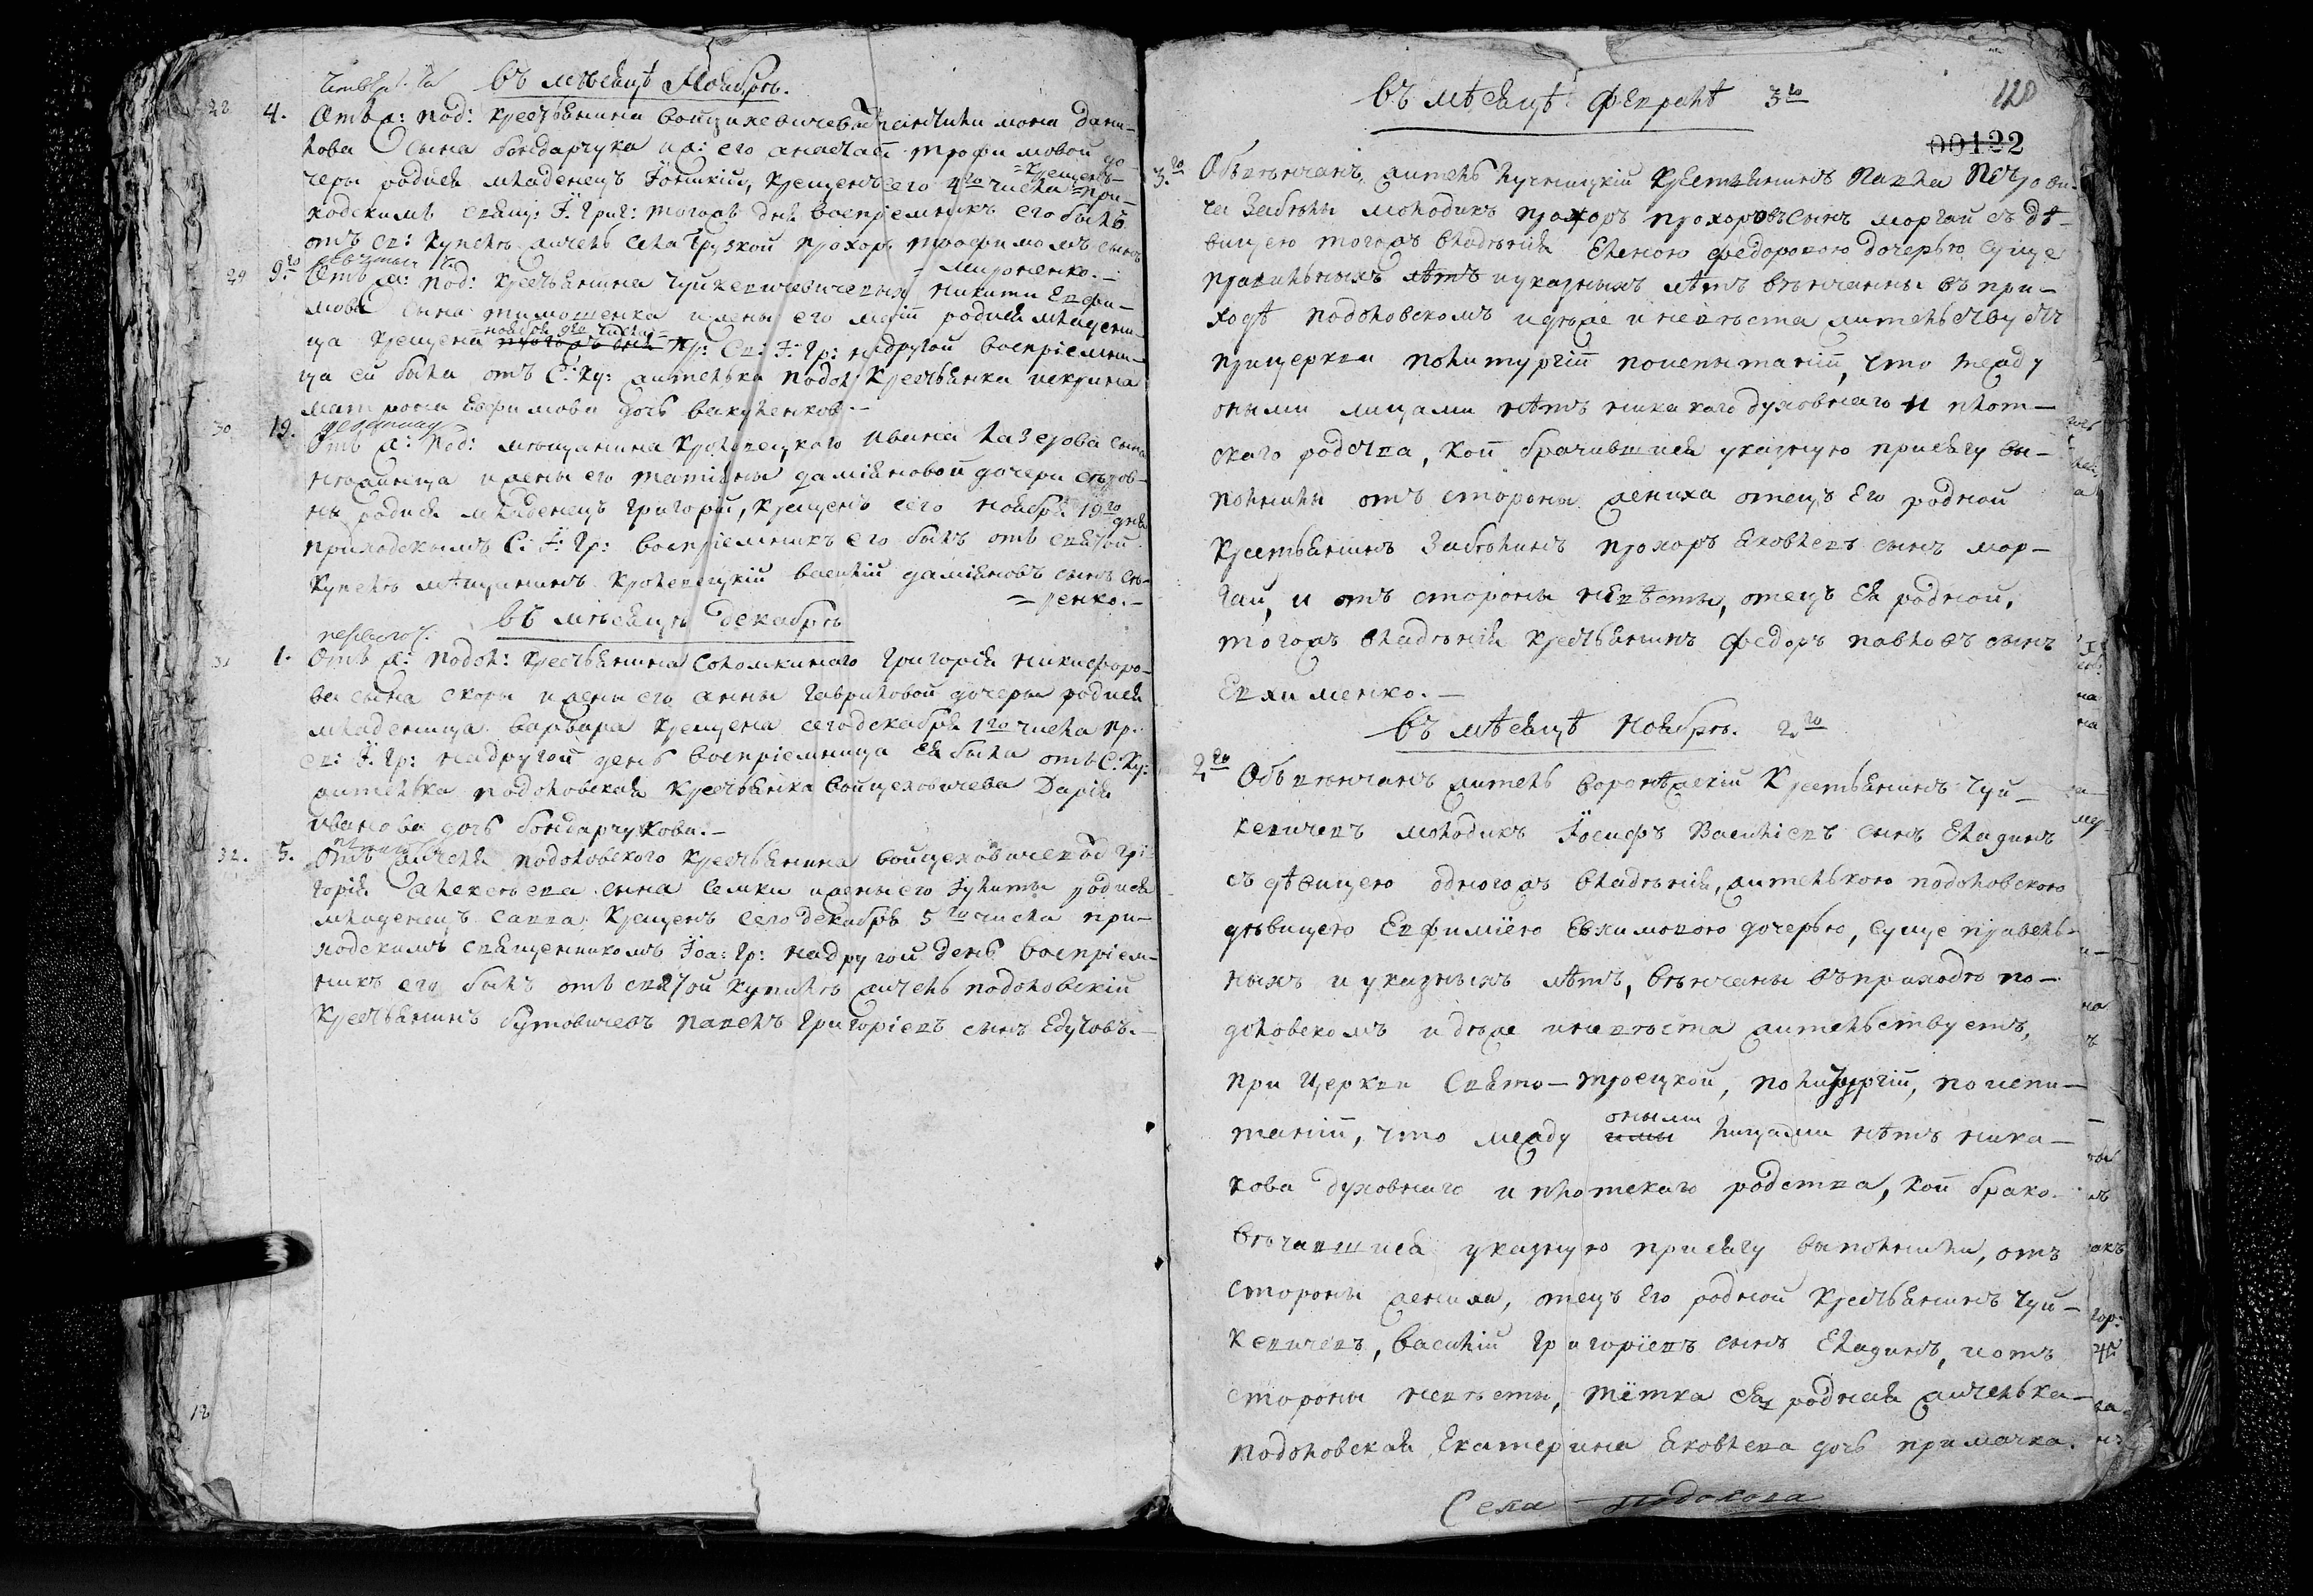 въ мѣсяцѣ Ноябрѣ.
28 4. Отъ ж: под: крестьянина
кова сына бондарчука и ж: его анастасіи трофимовой до-
чери родися младенецъ Іоанникій, крещенъ сего 4го числа при-
ходскимъ свящ: І. Григ: тогожъ дня воспріемникъ его былъ
отъ св: купѣль жичель села Грузкой прохоръ трофимомъ сынъ
мироненко.—
29 9го Отъ ж: под: крестьянина Чуйкевичевичевыхъ никиты Евфи-
мова сына тимошенка и жены его родися младени-
ца крещена ноября 9го числа пр: св: І: Гр: на другой воспріемни-
ца ей была отъ С: ку: жителька подол: крестьянка
матрона Евфимова дочь вакуленкова.—
30 19. Отъ ж: под: мѣщанина кролевецкого Ивана Лазерова сына
и жены его татіяны даміяновой дочери
родися младенецъ Григорій, крещенъ сего ноября 19го дня
приходскимъ С: І: Гр: воспріемникъ его былъ отъ святой
купелѣ мѣщининъ кролевецкій василій даміяновъ сынъ
ренко.—
въ мѣсяцѣ декабрѣ
перваго ч.
31 1. Отъ ж: подол: крестьянина Соломкинаго Григорія никифоро-
ва сына скоры и жены его анны Гавриловой дочери родися
младеница варвара крещена сего декабря 1го числа пр.
св: І. Гр: на другой день воспріемница ея была отъ С: ку:
жителька подоловская крестьянка войцеховичева Дарія
иванова дочь бондарчукова.—
32. 5. Отъ жителя подоловского крестьянина войцеховичевой гри-
горія алексѣева сына Семки и жены его Іулиты родися
младенецъ савва крещенъ сего декабря 5го числа при-
ходскимъ священникомъ Іоа: Гр: на другой день воспріем-
никъ его былъ отъ святой купилѣ жичель подоловскій
крестьянинъ бутовичевъ павелъ Григоріевъ сынъ Едутовъ.—
18
120
00122
въ мѣсяцѣ февралѣ 3го
3го Обвѣнчанъ житель лучницкій крестьянинъ Павла Петрови-
ча Забѣлы молодикъ прохоръ прохоровъ сынъ моргай съ дѣ-
вицею тогожъ владѣнія Еленою федоровою дочерью суще
правильныхъ лѣтъ и указныхъ лѣтъ вѣнчанны въ при-
ходѣ подоловскомъ идѣже и невѣста жительствуетъ
при церкви по литургіи по испытаніи, что между
оными лицами нѣтъ никакаго духовнаго и плот-
скаго родства, кои брачившися указную присягу вы-
полнили отъ стороны жениха отецъ Его родной
крестьянинъ Забѣлинъ прохоръ яковлевъ сынъ мор-
гай, и отъ стороны невѣсты, отецъ ея родной,
тогожъ владѣнія крестьянинъ федоръ павловъ сынъ
Евхименко.—
въ мѣсяцѣ Ноябрѣ. 2го
2го Обвѣнчанъ житель воронѣжскій крестьянинъ Чуй-
кевичевъ молодикъ Іосифъ Василіевъ сынъ Еладинъ
съ дѣвицею одногожъ владѣнія, жителькою подоловскою
дѣвицею Евфиміею Евхимовою дочерью, суще правель-
ныхъ и указныхъ лѣтъ, вѣнчаны въ приходѣ по-
доловскомъ идѣже и невѣста жительствуетъ,
при Церкви Свято-троецкой, по литургіи, по испи-
таніи, что между оными лицами нѣтъ ника-
кова духовнаго и плотскаго родства, кои брако-
вѣчавшися указную присягу выполнили, отъ
стороны жениха, отецъ Его родной крестьянинъ Чуй-
кевичевъ, василій Григоріевъ сынъ Еладинъ, и отъ
стороны невѣсты, тётка ея родная жителька
подоловская, Екатерина Яковлева дочь примачка.
Села Подолова